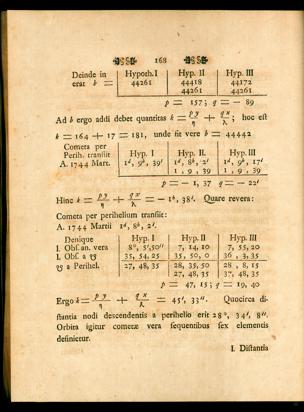 168
Deinde in | Hypoth. I | Hyp. II | Hyp. III
erat k = | 44261 | 44418 | 44172
44261 | 44261
p = 157; q = − 89
Ad k ergo addi debet quantitas k = py/η + qx/λ; hoc est
k = 164 + 17 = 181, unde fit vere k = 44442
Cometa per
Perih. transiit | Hyp. I | Hyp. II | Hyp. III
A. 1744 Mart. | 1d, 9h, 39′ | 1d, 8h, 2′ | 1d, 9h, 17′
1, 9, 39 | 1, 9, 39
p = − 1, 37 q = − 22′
Hinc k = py/η + qx/λ = − 1h, 38′. Quare revera:
Cometa per perihelium transiit:
A. 1744 Martii 1d, 8h, 2′.
Denique | Hyp. I | Hyp. II | Hyp. III
I. Obs. an. vera | 8°, 5′, 50″ | 7, 14, 10 | 7, 55, 20
I. Obs. a ☊ | 35, 54, 25 | 35, 50, 0 | 36, 3, 35
☊ a Perihel. | 27, 48, 35 | 28, 35, 50 | 28, 8, 15
27, 48, 35 | 27, 48, 35
p = 47, 15; q = 19, 40
Ergo k = py/η + qx/λ = 45′, 33″. Quocirca di-
stantia nodi descendentis a perihelio erit 28°, 34′, 8″.
Orbita igitur cometæ vera sequentibus sex elementis
definietur.
I. Distantia